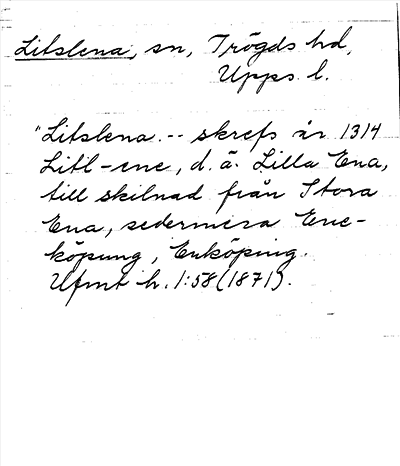 Litslena, sn, Trögds hd,
Upps. l.
"Litslena -- skrefs år 1314
Litl-ene, d. ä. Lilla Ena,
till skilnad från Stora
Ena, sedermera Ene-
köpung, Enköping.
Ufmt h. 1:58 (1871).